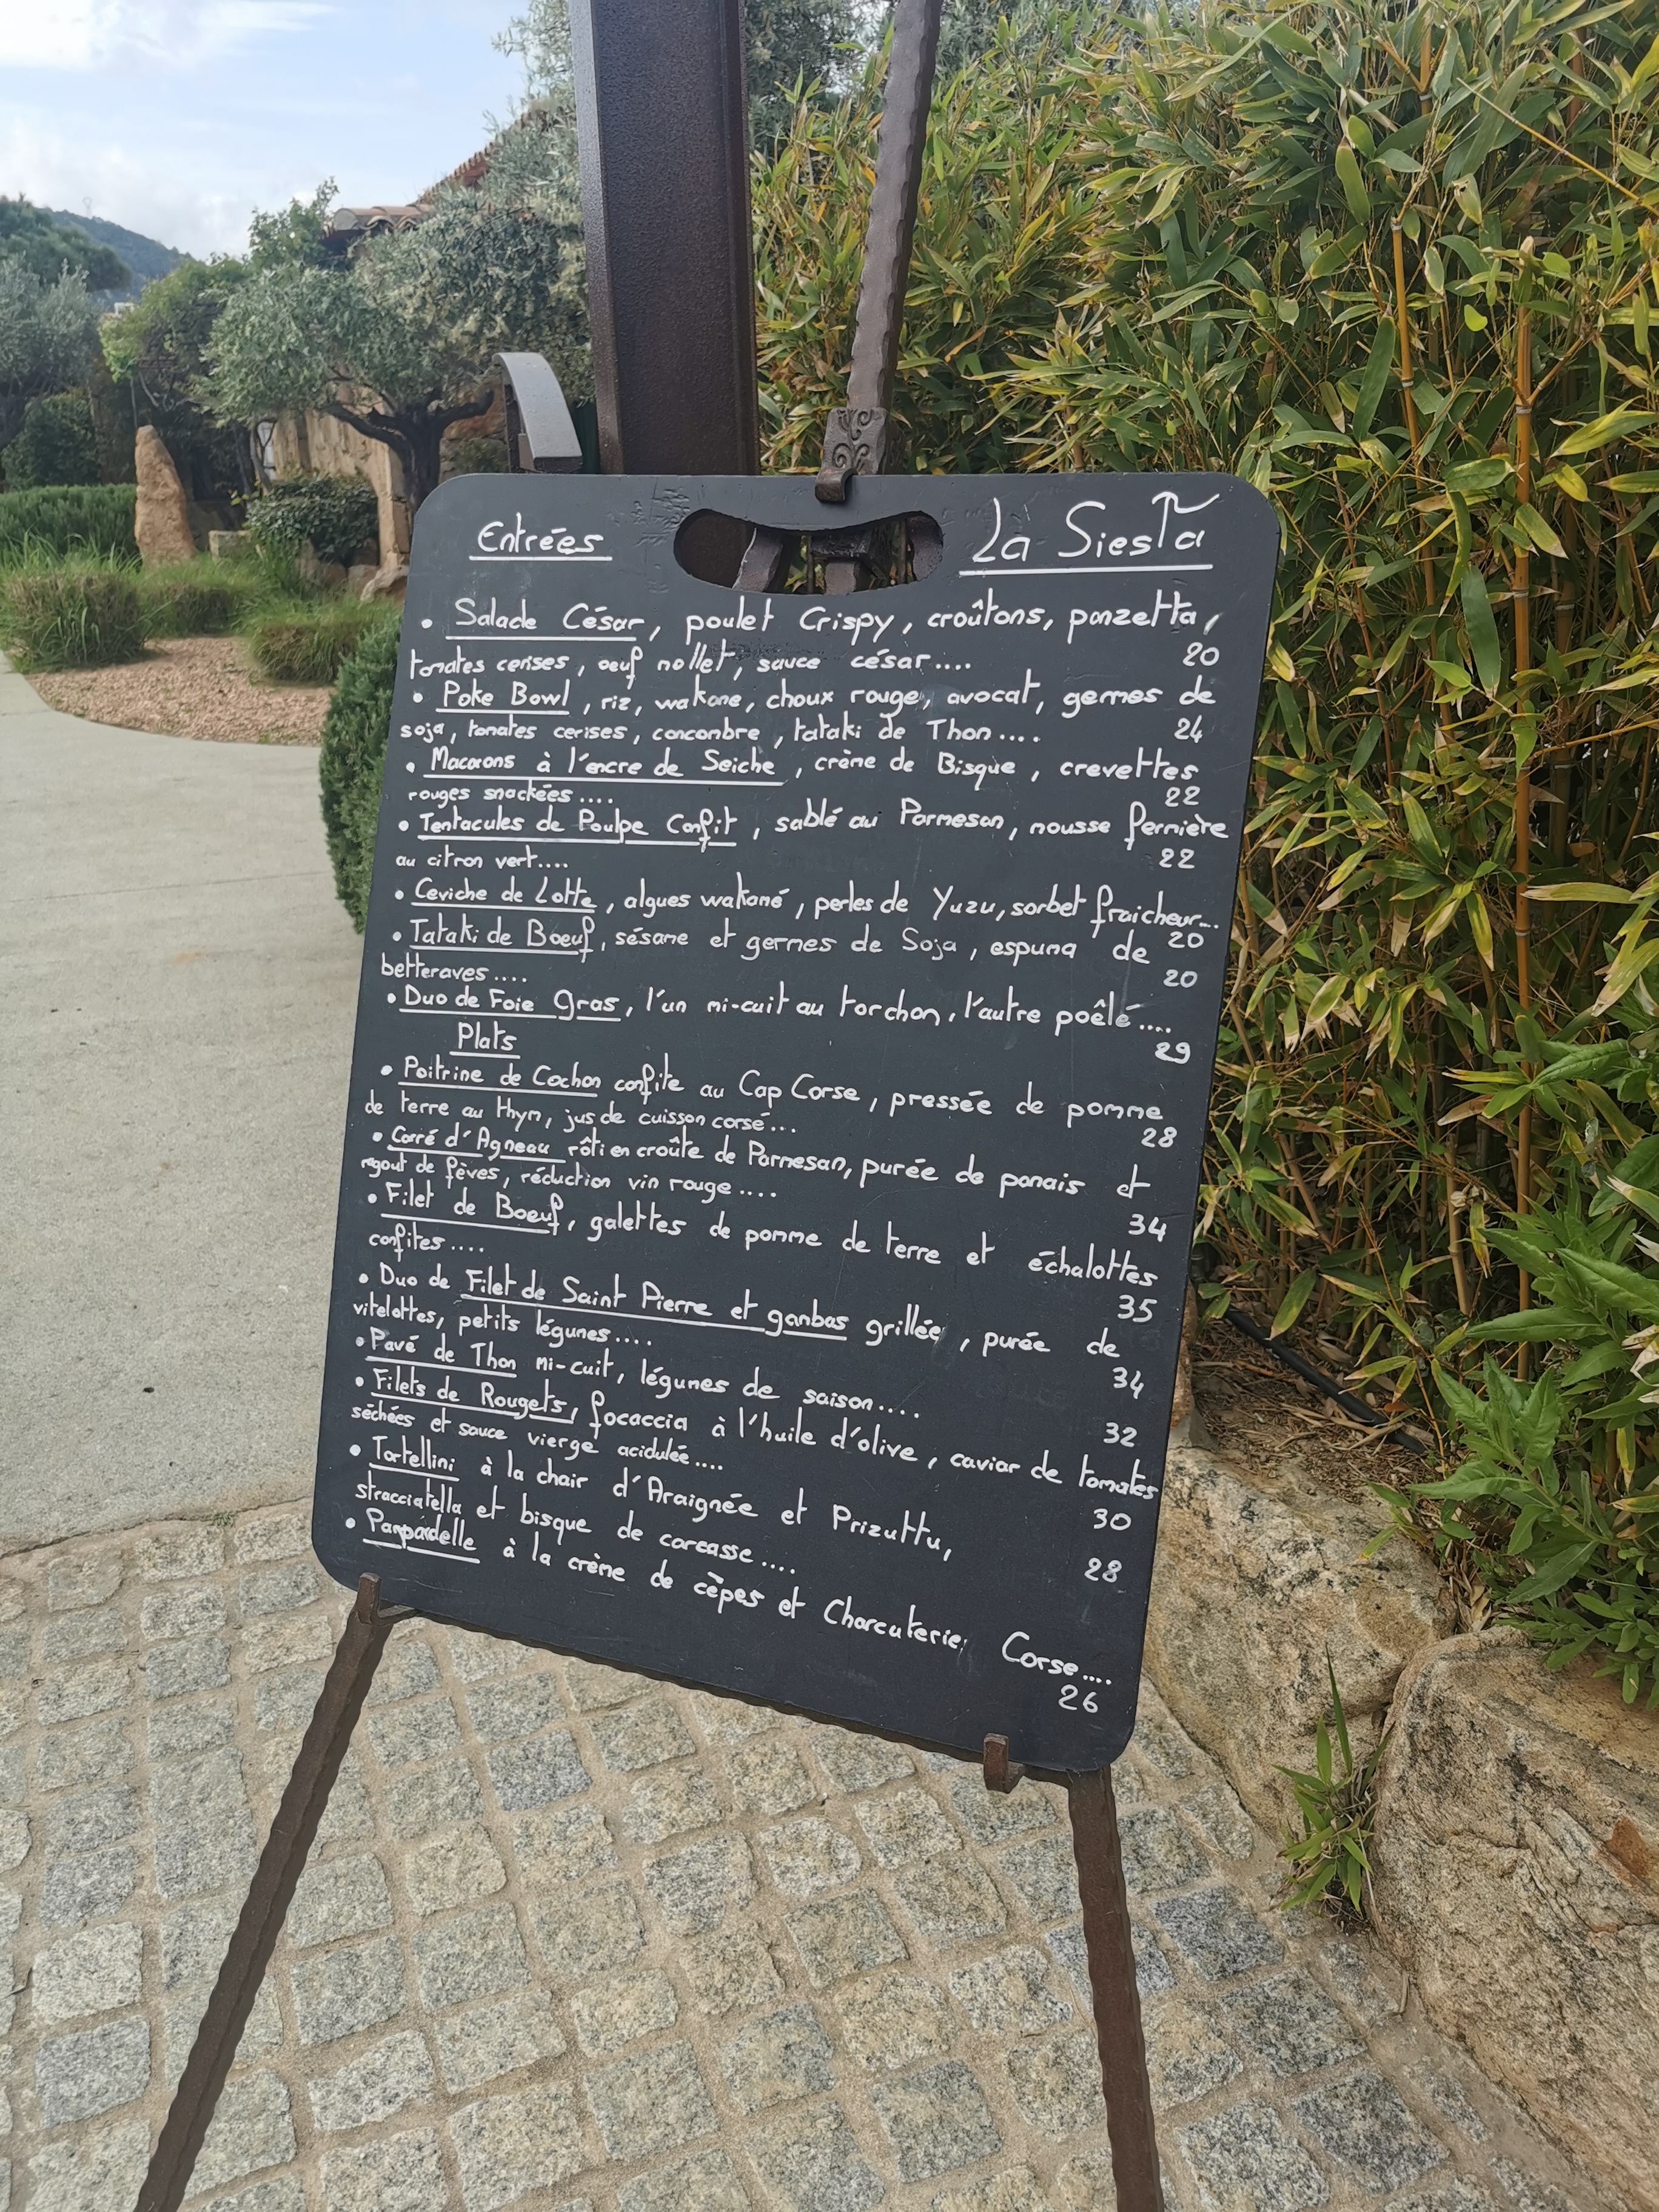 Entrées
La Siesta
• Salade César, poulet Crispy, croûtons, panzetta,
tomates cerises, oeuf mollet, sauce césar.... 20
• Poke Bowl, riz, wakame, choux rouge, avocat, germes de
soja, tomates cerises, concombre, tataki de Thon.... 24
• Macarons à l'encre de Seiche, crème de Bisque, crevettes
rouges snackées.... 22
• Tentacules de Poulpe Confit, sablé au Parmesan, mousse fermière
au citron vert.... 22
• Ceviche de Lotte, algues wakamé, perles de Yuzu, sorbet fraicheur...
20
• Tataki de Boeuf, sésame et germes de Soja, espuma de
betteraves.... 20
• Duo de Foie Gras, l'un mi-cuit au torchon, l'autre poêlé....
29
Plats
• Poitrine de Cochon confite au Cap Corse, pressée de pomme
de terre au thym, jus de cuisson corsé... 28
• Carré d'Agneau rôti en croûte de Parmesan, purée de panais et
ragout de fèves, réduction vin rouge.... 34
• Filet de Boeuf, galettes de pomme de terre et échalottes
confites.... 35
• Duo de Filet de Saint Pierre et gambas grillée, purée de
vitelottes, petits légumes.... 34
• Pavé de Thon mi-cuit, légumes de saison.... 32
• Filets de Rougets, focaccia à l'huile d'olive, caviar de tomates
séchées et sauce vierge acidulée.... 30
• Tortellini à la chair d'Araignée et Prizuttu,
stracciatella et bisque de carcasse.... 28
• Pappardelle à la crème de cèpes et Charcuterie Corse....
26